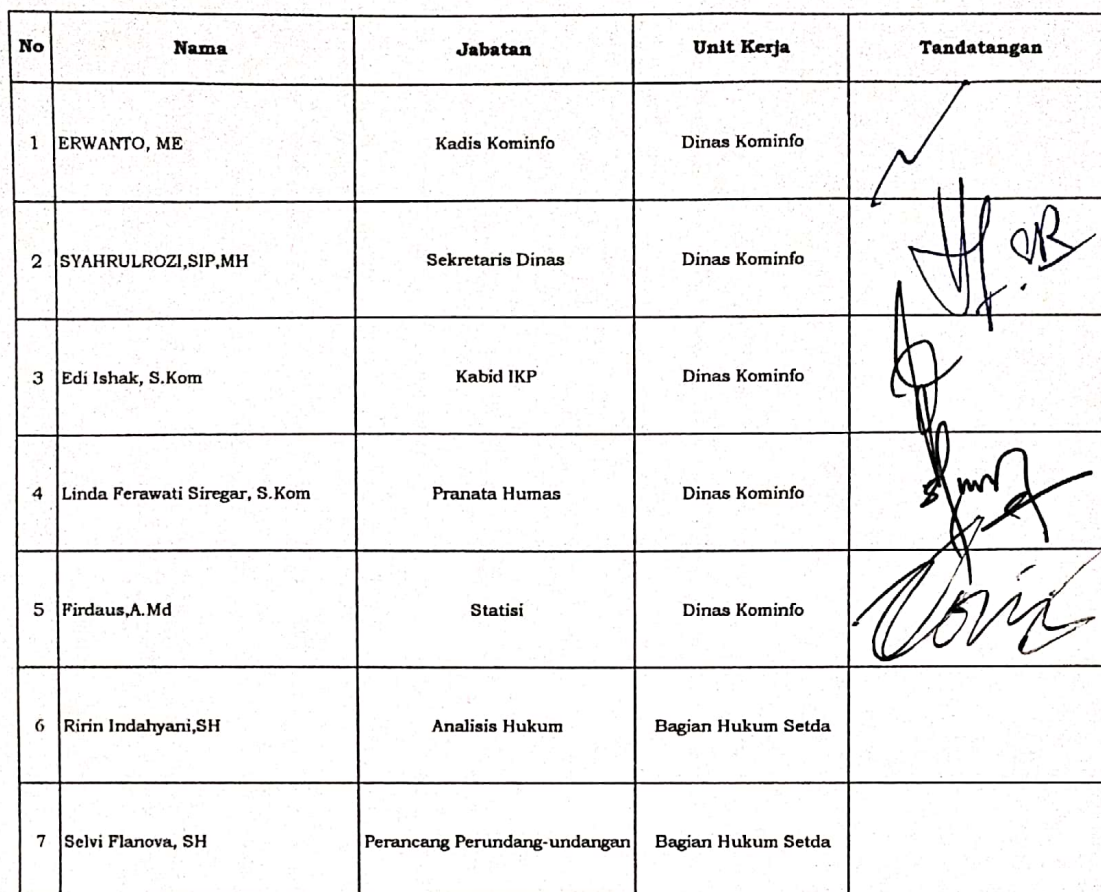 No Nama Jabatan Unit Kerja Tandatangan
1 ERWANTO, ME Kadis Kominfo Dinas Kominfo
2 SYAHRULROZI,SIP,MH Sekretaris Dinas Dinas Kominfo
3 Edi Ishak, S.Kom Kabid IKP Dinas Kominfo
4 Linda Ferawati Siregar, S.Kom Pranata Humas Dinas Kominfo
5 Firdaus,A.Md Statisi Dinas Kominfo
6 Ririn Indahyani,SH Analisis Hukum Bagian Hukum Setda
7 Selvi Flanova, SH Perancang Perundang-undangan Bagian Hukum Setda